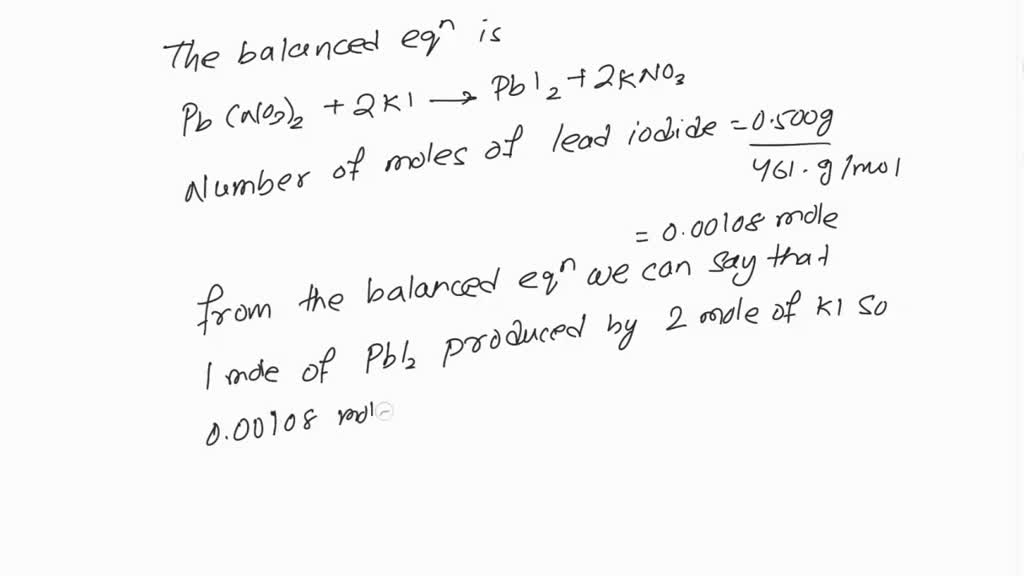 The balanced eqⁿ is
Pb(NO₃)₂ + 2KI → PbI₂ + 2KNO₃
Number of moles of lead iodide = 0.500g / 461.g/mol
= 0.00108 mole
from the balanced eqⁿ we can say that
1 mole of PbI₂ produced by 2 mole of KI so
0.00108 mol